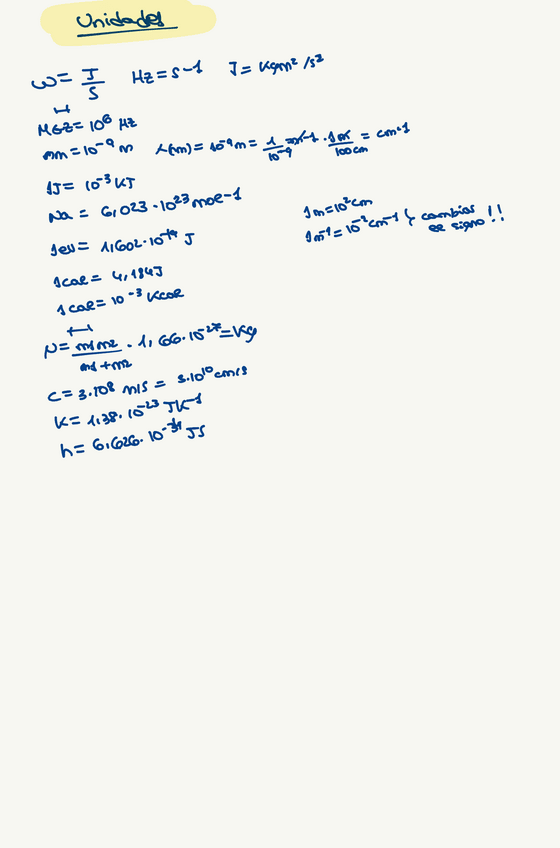 Unidades
ω = J/S   Hz = s-1   J = Kgm² /s²
MGZ = 10⁶ Hz
nm = 10⁻⁹ m   λ(m) = 10⁻⁹m = 1/10⁻⁹ m-1 · 1m/100cm = cm-1
1J = 10⁻³ KJ
Na = 6,023 · 10²³ mol-1
1m = 10² cm
1m⁻¹ = 10⁻² cm⁻¹ } cambias el signo !!
1eV = 1,602·10⁻¹⁹ J
1cal = 4,184J
1cal = 10⁻³ Kcal
μ = m1m2/m1+m2 · 1,66·10⁻²⁷ = Kg
c = 3·10⁸ m/s = 3·10¹⁰ cm/s
K = 1,38·10⁻²³ JK⁻¹
h = 6,626·10⁻³⁴ JS